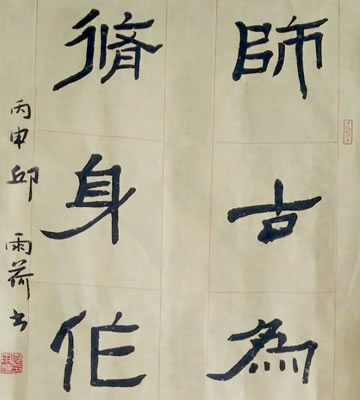 師古為
脩身作
丙申邱雨荷书